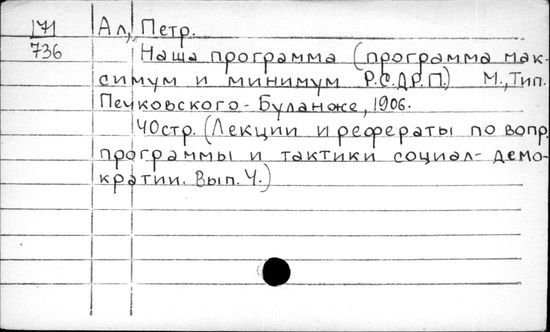 171 Ал, Петр.
736 Наша программа (программа мак-
симум и минимум Р.С.Д.Р.П.) М., Тип.
Печковского-Буланже, 1906.
40стр. (Лекции и рефераты по вопр.
программы и тактики социал-демо-
кратии. Вып. 4.)